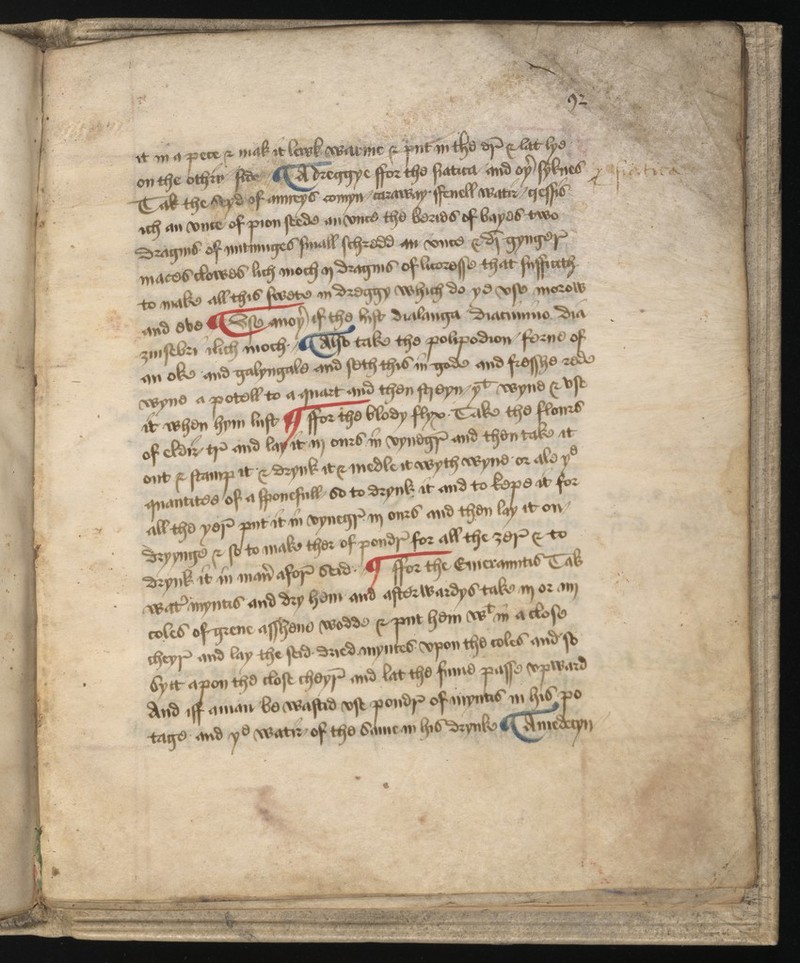 92
it in a pece & mak it lewk warme & put in the er & lat hy
on the othir side ¶ A dreggye ffor the siatica and oyr syknes
siatica
Tak the seyd of anneys comyn caraway ffenell watir
ich an vnce of pion seede an vnce the beries of bayes two
dragms of nutmuges small schredd an vnce & di gynger
maces clowes lich moch ij dragms of licoresse that sufficith
to make all this swete in dreggy which do ye vse morow
and eve ¶ Vse anoyr if the list dialanga diacimino dia
zinsebri ilich moch ¶ Also take the polipodion ferne of
an oke and galyngale and seth this in gode and fresshe rede
wyne a potell to a quart and then streyn yt wyne & vse
it when hym lust ¶ ffor the blody flyx Take the flours
of eldir tre and lay it iij ours in vynegr and then take it
out & stamp it & drynk it & medle it wyth wyne or ale ye
quantitee of a sponefull so to drynk it and to kepe it for
all the yer put it in vynegr iij ours and then lay it on
dryynge & so to make ther of poudr for all the zer & to
drynk it in man afor seid ¶ ffor the Emeraudis Tak
watr myntis and dry hem and afterwardys take iij or iiij
coles of grene asshene wodde & put hem wt in a close
cheyr and lay the seid dried myntes vpon the coles and so
sytt apon the close cheyr and lat the fume passe vpward
And iff a man be wastid vse poudr of myntis in his po
tage and ye watir of the same in his drynke ¶ A medecyn